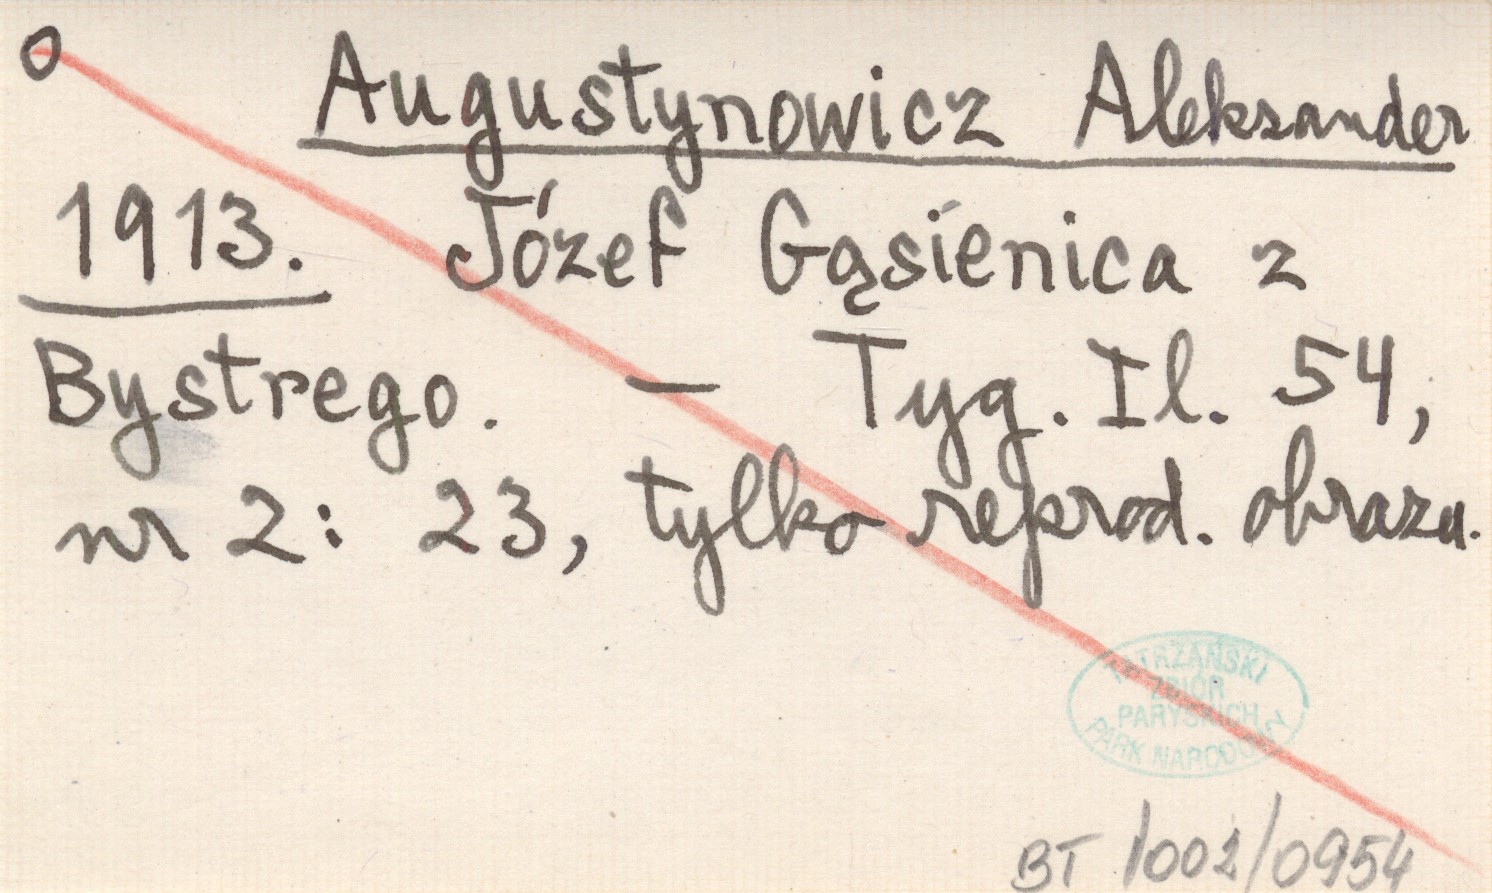 o Augustynowicz Aleksander
1913. Józef Gąsienica z
Bystrego. — Tyg. Il. 54,
nr 2: 23, tylko reprod. obrazu.
TATRZAŃSKI
ZBIÓR
PARYSKICH
PARK NARODOWY
BT/002/0954